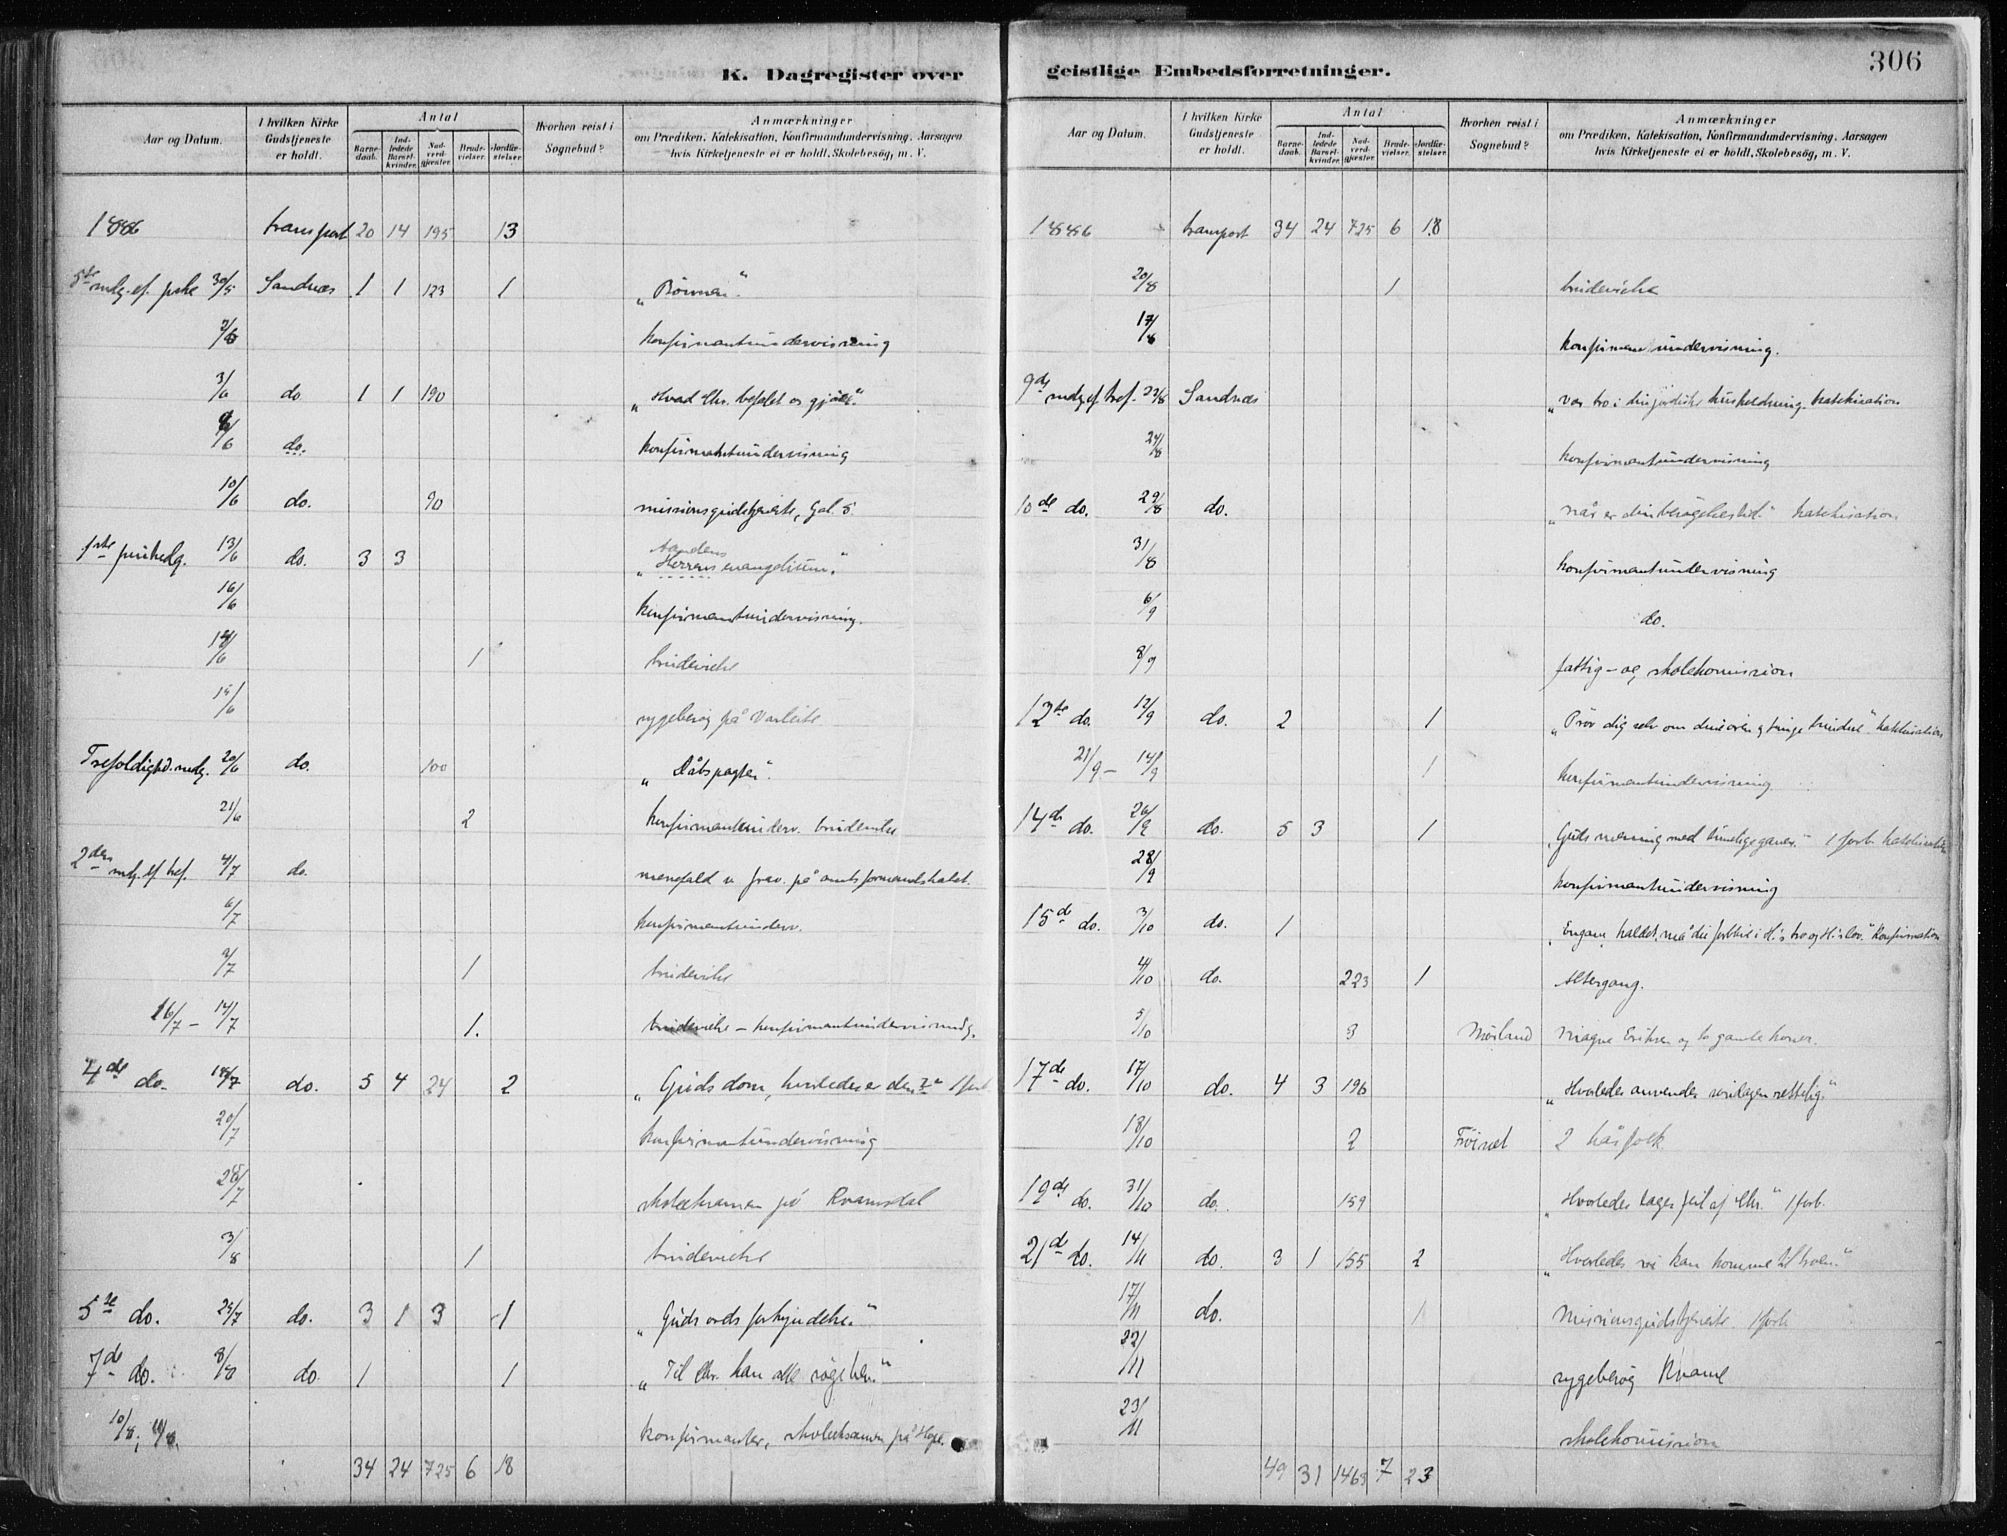 306
K. Dagregister over geistlige Embedsforretninger.
Aar og Datum. I hvilken Kirke Gudstjeneste er holdt. Antal Barnedaab. Indledede Barselkvinder. Nadverdgjæster. Brudevielser. Jordfæstelser. Hvorhen reist i Sognebud? Anmærkninger om Prædiken, Katekisation, Konfirmandundervisning, Aarsagen hvis Kirketjeneste ei er holdt, Skolebesøg, m. V.
1886 transport 20 14 195 13
5te mdg. ef. pske 30/5 Sandnes 1 1 123 1 „Bønnen“.
2/6 konfirmantundervisning
3/6 do 1 1 190 „Hvad Chr. befalet os gjøre“.
/6 do. konfirmantundervisning
10/6 do. 90 missionsgudstjeneste, Gal. 5.
1ste pintsedg. 13/6 do. 3 3 „Aandens evangelium.“
16/6 konfirmantundervisning.
/6 1 brudevielse
15/6 sygebesøg på
Trefoldighd. sndg. 20/6 do. 100 „Dåbspagten“.
21/6 2 konfirmantunderv. brudevielse
2den sndg. ef. tref. 4/7 do. messefald v. frav. på amtsformandskabet.
6/7 konfirmantunderv.
/7 1 brudevielse
16/7 – 14/7 1. brudevielse – konfirmantundervisning.
4de do. 18/7 do. 5 4 24 2 „Guds dom, hvorledes er den?“ 1 forb.
20/7 konfirmantundervisning
/7 skoleeksamen på Kvamsdal
3/8 1 brudevielse
5te do. 25/7 do. 3 1 3 1 „Guds ords forkyndelse.“
7de do. 8/8 do. 1 1 „Til Chr. kan alle søge hen.“
10/8, /8. konfirmanter, skoleeksamen på Hope.
34 24 725 6 18
Aar og Datum. I hvilken Kirke Gudstjeneste er holdt. Antal Barnedaab. Indledede Barselkvinder. Nadverdgjæster. Brudevielser. Jordfæstelser. Hvorhen reist i Sognebud? Anmærkninger om Prædiken, Katekisation, Konfirmandundervisning, Aarsagen hvis Kirketjeneste ei er holdt, Skolebesøg, m. V.
1886 transport 34 24 725 6 18
20/8 1 brudevielse
17/8 konfirmantundervisning.
9de sndg. ef. tref. 22/8 Sandnes „Vær tro i din jordiske husholdning. katekisation
24/8 konfirmantundervisning
10de do. 29/8 do. „Når er din besøgelsestid.“ katekisation
31/8 konfirmantundervisning
6/9 do.
8/9 fattig- og skolekomission
12te do. 12/9 do. 2 1 „Prøv dig selv om dine øren og tunge bundne.“ katekisation
21/9 – 14/9 1 konfirmantundervisning
14de do. 26/9 do. 5 3 1 „Guds mening med timelige gaver.“ 1 forb. katekisation
28/9 konfirmantundervisning
15de do. 3/10 do. 1 konfirmation
4/10 do. 223 1 Altergang.
5/10 3 Magne Eriksen og to gamle koner.
17de do. 17/10 do. 4 3 196 „Hvorledes anvendes søndagen rettelig.“
18/10 2 Frøiset 2 kårfolk
19de do. 31/10 do. 159 „Hvorledes tages feil af Chr.“ 1 forb.
21de do. 14/11 do. 3 1 155 2 „Hvorledes vi kan komme til troen.“
17/11 do. 1 Missionsgudstjeneste 1 forb
22/11 sygebesøg Kvame
23/11 skolekomission
49 31 1463 7 23